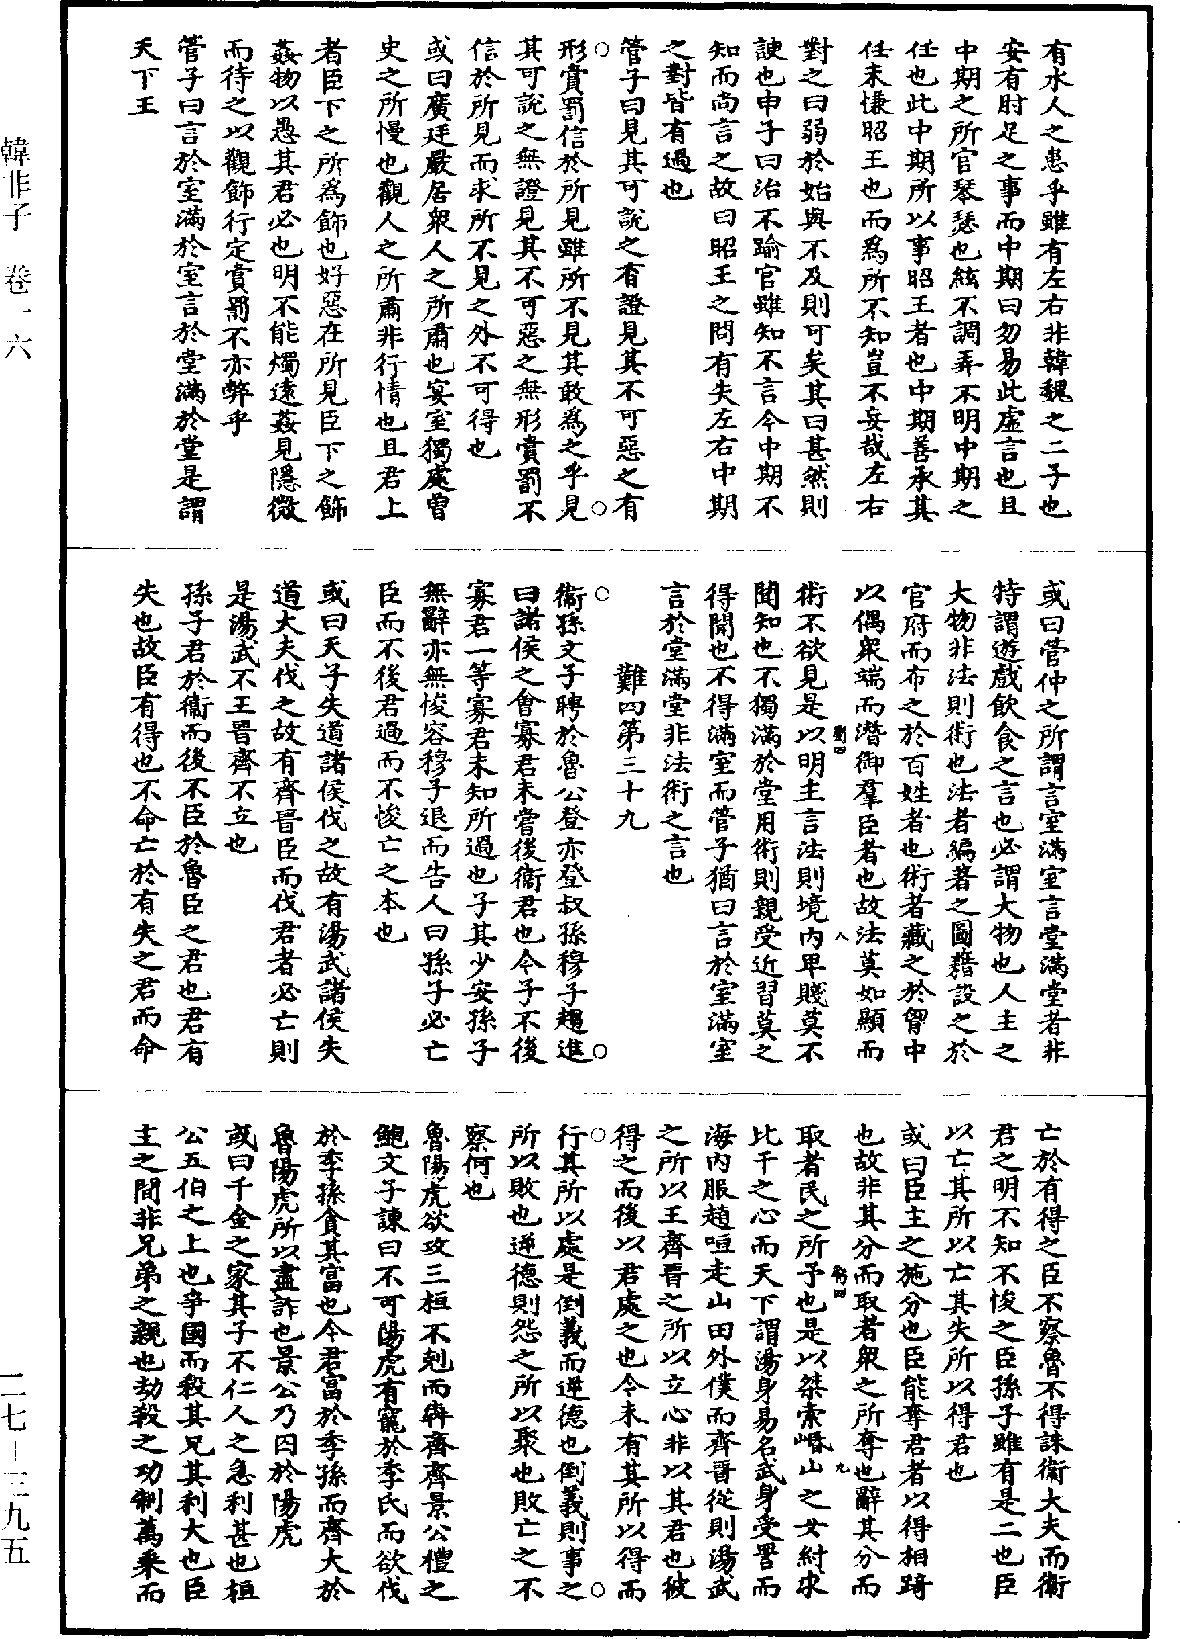 有水人之患乎雖有左右非韓魏之二子也
安有肘足之事而中期曰勿易此虛言也且
中期之所官琴瑟也絃不調弄不明中期之
任也此中期所以事昭王者也中期善承其
任未慊昭王也而為所不知豈不妄哉左右
對之曰弱於始與不及則可矣其曰甚然則
諛也申子曰治不踰官雖知不言今中期不
知而尚言之故曰昭王之問有失左右中期
之對皆有過也
管子曰見其可說之有證見其不可惡之有
形賞罰信於所見雖所不見其敢為之乎見
其可說之無證見其不可惡之無形賞罰不
信於所見而求所不見之外不可得也
或曰廣廷嚴居衆人之所肅也宴室獨處曾
史之所慢也觀人之所肅非行情也且君上
者臣下之所為飾也好惡在所見臣下之飾
姦物以愚其君必也明不能燭遠姦見隱微
而待之以觀飾行定賞罰不亦弊乎
管子曰言於室滿於室言於堂滿於堂是謂
天下王
或曰管仲之所謂言室滿室言堂滿堂者非
特謂遊戲飲食之言也必謂大物也人主之
大物非法則術也法者編著之圖籍設之於
官府而布之於百姓者也術者藏之於胷中
以偶衆端而潛御羣臣者也故法莫如顯而
術不欲見是以明主言法則境內卑賤莫不
聞知也不獨滿於堂用術則親愛近習莫之
得聞也不得滿室而管子猶曰言於室滿室
言於堂滿堂非法術之言也
難四第三十九
衞孫文子聘於魯公登亦登叔孫穆子趨進
曰諸侯之會寡君未嘗後衞君也今子不後
寡君一等寡君未知所過也子其少安孫子
無辭亦無悛容穆子退而告人曰孫子必亡
臣而不後君過而不悛亡之本也
或曰天子失道諸侯伐之故有湯武諸侯失
道大夫伐之故有齊晉臣而伐君者必亡則
是湯武不王晉齊不立也
孫子君於衞而後不臣於魯臣之君也君有
失也故臣有得也不命亡於有失之君而命
亡於有得之臣不察魯不得誅衞大夫而衞
君之明不知不悛之臣孫子雖有是二也臣
以亡其所以亡其失所以得君也
或曰臣主之施分也臣能奪君者以得相踦
也故非其分而取者衆之所奪也辭其分而
取者民之所予也是以桀索崏山之女紂求
比干之心而天下謂湯身易名武身受詈而
海內服趙咺走山田外僕而齊晉從則湯武
之所以王齊晉之所以立心非以其君也彼
得之而後以君處之也今未有其所以得而
行其所以處是倒義而逆德也倒義則事之
所以敗也逆德則怨之所以聚也敗亡之不
察何也
魯陽虎欲攻三桓不剋而犇齊齊景公禮之
鮑文子諫曰不可陽虎有寵於季氏而欲伐
於季孫貪其富也今君富於季孫而齊大於
魯陽虎所以盡詐也景公乃囚於陽虎
或曰千金之家其子不仁人之急利甚也桓
公五伯之上也爭國而殺其兄其利大也臣
主之間非兄弟之親也劫殺之功制萬乘而
韓非子 卷一六
二七－三九五